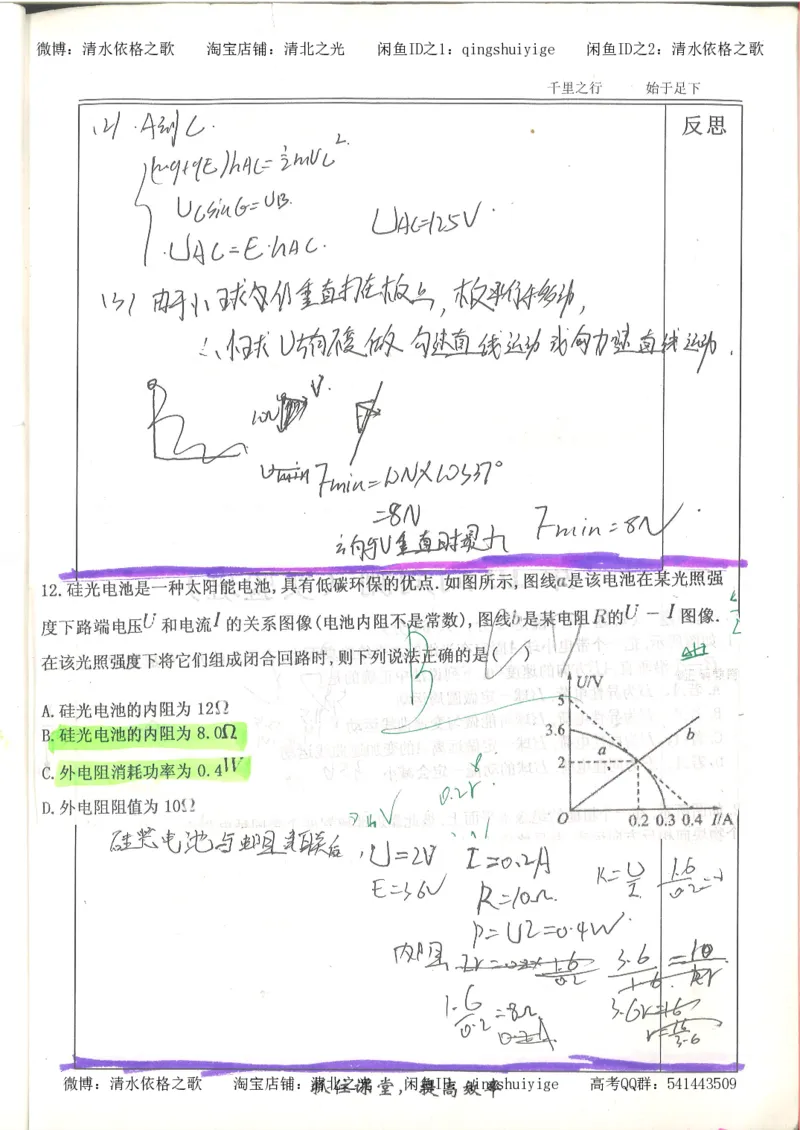 微博：清水依格之歌 淘宝店铺：清北之光 闲鱼ID之1：qingshuiyige 闲鱼ID之2：清水依格之歌
千里之行 始于足下
反思
(2) A到C.
(mg+qE)hAC=½mVC².
UCsinG=UB.
UAC=E·hAC.
UAC=125V
(3) 由于小球仍垂直打在板上,
匀速直线运动或匀力速直线运动.
10N
V.
Fmin=10N×cos37°
=8N
Fmin=8N
12.硅光电池是一种太阳能电池,具有低碳环保的优点.如图所示,图线a是该电池在某光照强
度下路端电压U和电流I的关系图像(电池内阻不是常数),图线b是某电阻R的U－I图像.
在该光照强度下将它们组成闭合回路时,则下列说法正确的是( )
A.硅光电池的内阻为12Ω
B.硅光电池的内阻为8.0Ω
C.外电阻消耗功率为0.4W
D.外电阻阻值为10Ω
U/V
5
3.6
2
a
b
O
0.2 0.3 0.4 I/A
硅光电池与电阻串联后, U=2V I=0.2A
E=3.6V R=10Ω.
P=UI=0.4W.
R=U/I
1.6/0.2
内阻
3.6/1.6=10/r
1.6/0.2=8Ω
3.6r=16
r=16/3.6
微博：清水依格之歌 淘宝店铺：清北之光 闲鱼ID之1：qingshuiyige 高考QQ群：541443509
抓住课堂,提高效率